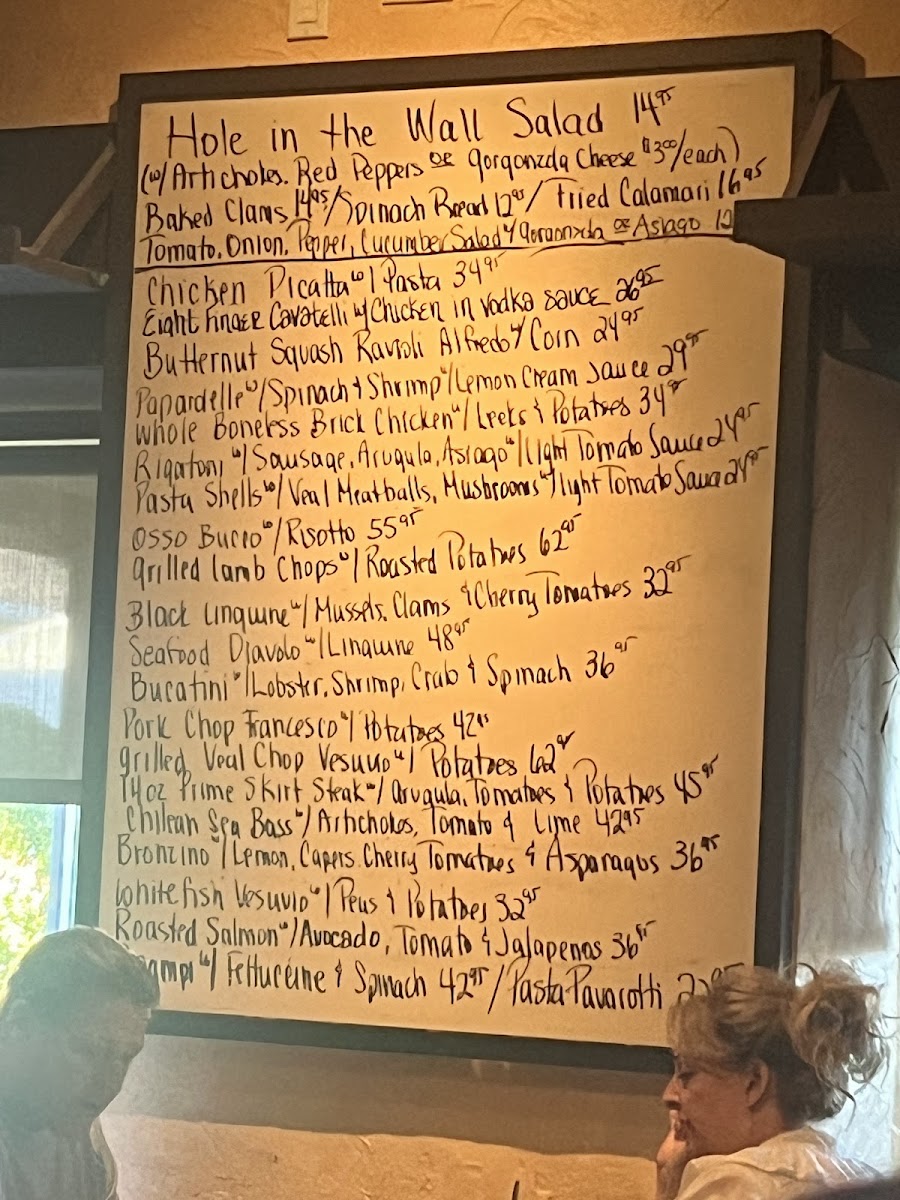 Hole in the Wall Salad 14⁹⁵
(w/ Artichokes, Red Peppers or gorgonzola Cheese $3⁰⁰/each)
Baked Clams 14⁹⁵/Spinach Bread 12⁹⁵/ Fried Calamari 16⁹⁵
Tomato, Onion, Pepper, Cucumber Salad w/ gorgonzola or Asiago 12
Chicken Picatta w/ Pasta 34⁹⁵
Eight Finger Cavatelli w/ Chicken in vodka sauce 26⁹⁵
Butternut Squash Ravioli Alfredo w/ Corn 24⁹⁵
Papardelle w/ Spinach & Shrimp w/ Lemon Cream Sauce 29⁹⁵
Whole Boneless Brick Chicken w/ Leeks & Potatoes 34⁹⁵
Rigatoni w/ Sausage, Arugula, Asiago w/ light Tomato Sauce 24⁹⁵
Pasta Shells w/ Veal Meatballs, Mushrooms w/ light Tomato Sauce 24⁹⁵
Osso Bucco w/ Risotto 55⁹⁵
grilled lamb Chops w/ Roasted Potatoes 62⁹⁵
Black linguine w/ Mussels, Clams & Cherry Tomatoes 32⁹⁵
Seafood Diavolo w/ Linguine 48⁹⁵
Bucatini w/ Lobster, Shrimp, Crab & Spinach 36⁹⁵
Pork Chop Francesco w/ Potatoes 42⁹⁵
grilled Veal Chop Vesuvio w/ Potatoes 62⁹⁵
14 oz Prime Skirt Steak w/ arugula, Tomatoes & Potatoes 45⁹⁵
Chilean Sea Bass w/ Artichokes, Tomato & Lime 42⁹⁵
Bronzino w/ Lemon, Capers, Cherry Tomatoes & Asparagus 36⁹⁵
Whitefish Vesuvio w/ Peas & Potatoes 32⁹⁵
Roasted Salmon w/ Avocado, Tomato & Jalapenos 36⁹⁵
w/ Fettuccine & Spinach 42⁹⁵ / Pasta Pavarotti